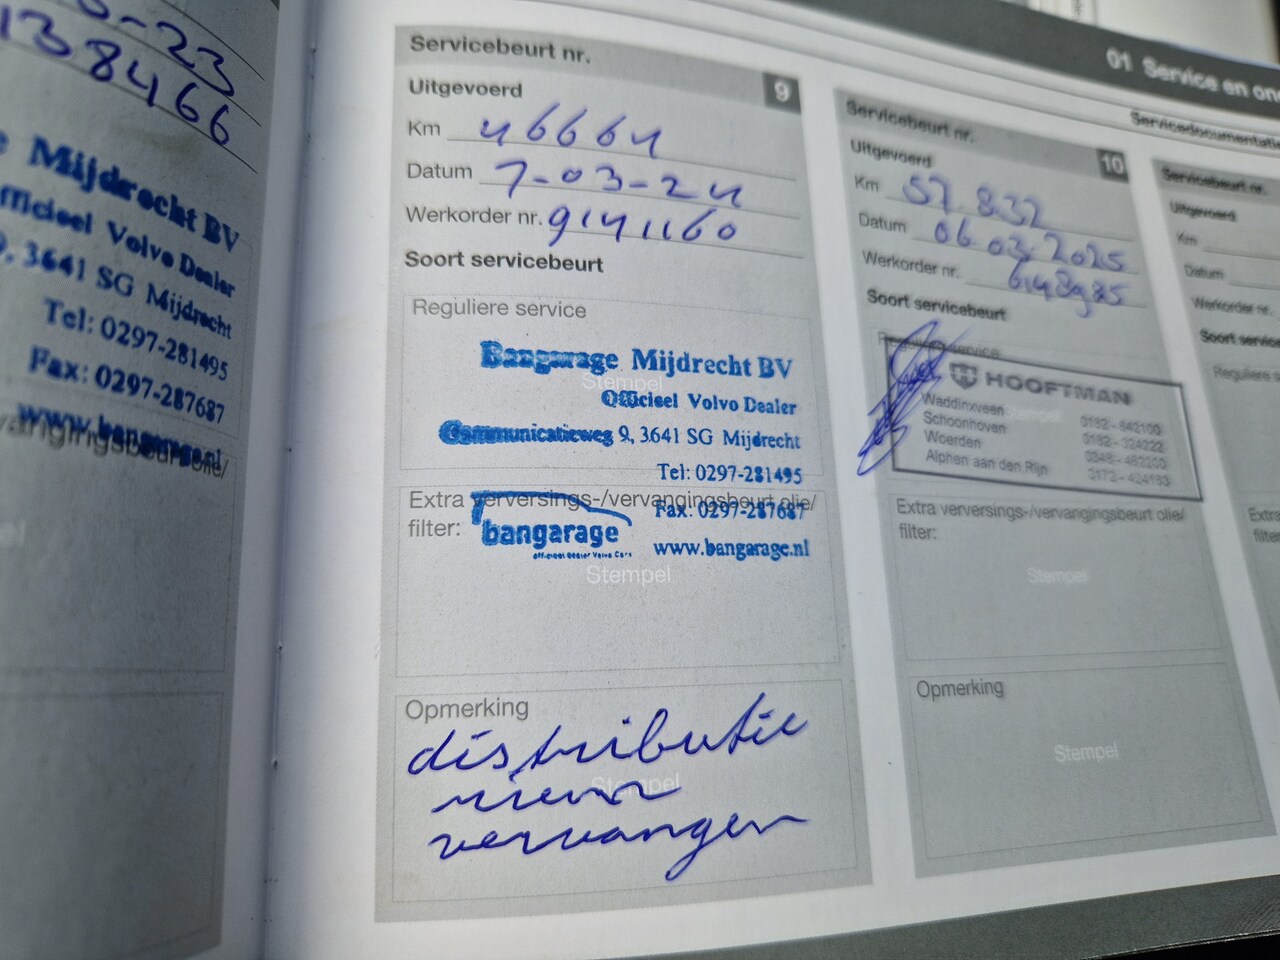 -23
138466
Mijdrecht BV
Officieel Volvo Dealer
9, 3641 SG Mijdrecht
Tel: 0297-281495
Fax: 0297-287687
www.bangarage.nl
vervangingsbeurt olie/
Servicebeurt nr. 9
Uitgevoerd
Km 46664
Datum 7-03-24
Werkorder nr. 9141160
Soort servicebeurt
Reguliere service
Bangarage Mijdrecht BV
Stempel
Officieel Volvo Dealer
Communicatieweg 9, 3641 SG Mijdrecht
Tel: 0297-281495
Extra verversings-/vervangingsbeurt olie/
Fax: 0297-287687
filter:
bangarage
officieel dealer Volvo Cars
www.bangarage.nl
Stempel
Opmerking
distributie
Stempel
riem
vervangen
01 Service en
Servicedocumentatie
Servicebeurt nr. 10
Uitgevoerd
Km 57.832
Datum 06.03.2025
Werkorder nr.
Soort servicebeurt
service
HOOFTMAN
Stempel
Waddinxveen 0182-642100
Schoonhoven 0182-324222
Woerden
Alphen aan den Rijn
Extra verversings-/vervangingsbeurt olie/
filter:
Stempel
Opmerking
Stempel
Servicebeurt nr.
Uitgevoerd
Km
Datum
Werkorder nr.
Soort
Reguliere
Extra
filter